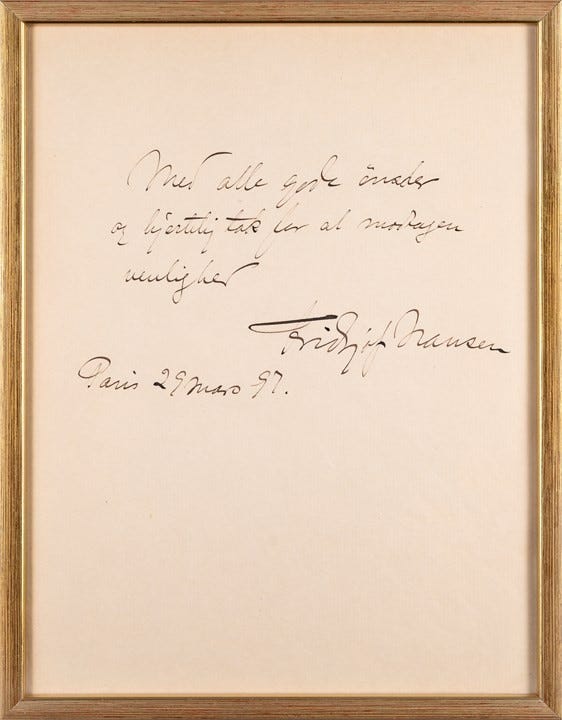 Med alle gode önsker
og hjertelig tak for al modtagen
venlighed
Fridtjof Nansen
Paris 29 mars 97.